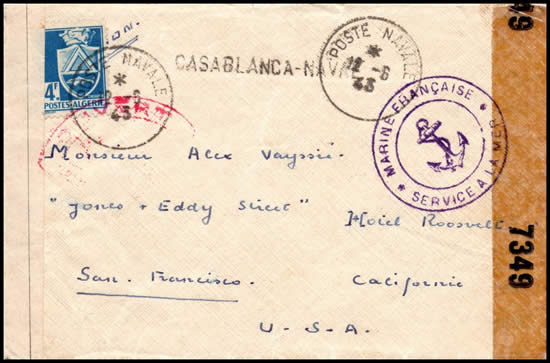 4F
POSTES-ALGERIE
POSTE NAVALE
12-6
43
CASABLANCA-NAVAL
POSTE NAVALE
12-6
43
MARINE FRANÇAISE
SERVICE A LA MER
Monsieur Alex Vayssié.
"Jones + Eddy Street"
Hotel Roosvelt
San. Francisco.
Californie
U.S.A.
7349
7349